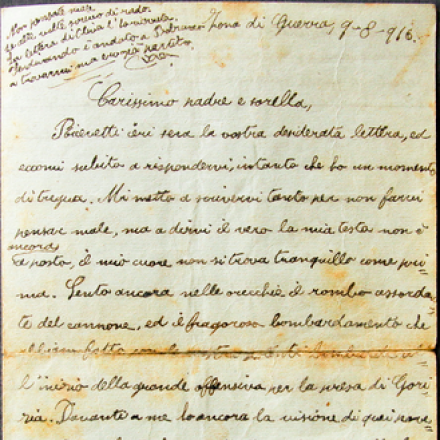 Non pensate male
se alle volte scrivo di rado.
La lettera di Clelia l'ho ricevuta.
Ferdinando è andato a
a trovarmi, ma era già partito.
Zona di Guerra, 9-8-916.
Carissimo padre e sorella,
Ricevetti ieri sera la vostra desiderata lettera, ed
eccomi subito a rispondervi, intanto che ho un momento
di tregua. Mi metto a scrivervi tanto per non farvi
pensar male, ma a dirvi il vero la mia testa non è
ancora
a posto, il mio cuore non si trova tranquillo come pri=
ma. Sento ancora nelle orecchie il rombo assordan=
te del cannone, ed il fragoroso bombardamento che
abbiam fatto con le nostre
l'inizio della grande offensiva per la presa di Gori=
zia. Davante a me ho ancora la visione di quei pove=